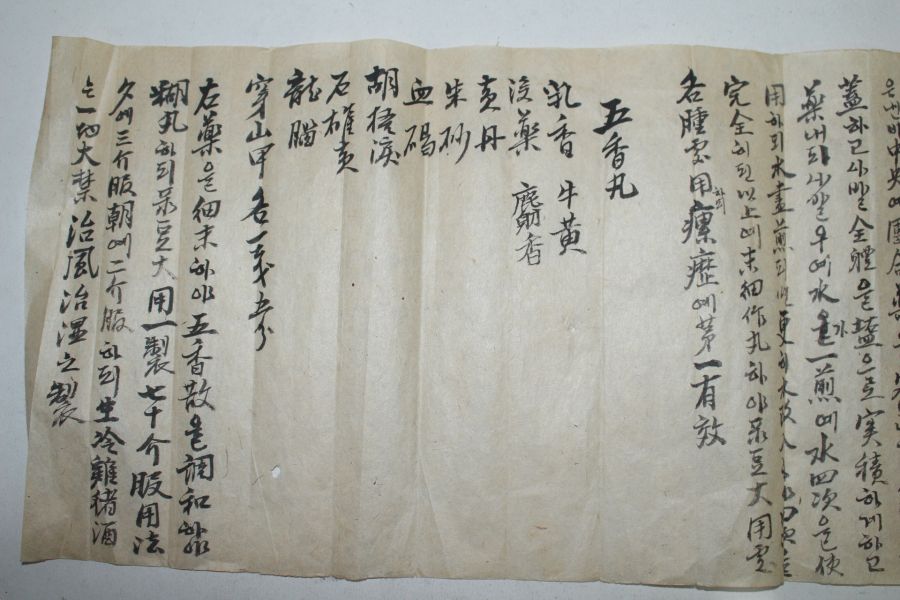 蓋하고사발全體을鹽으로実積하게하고
藥내되사발우에水을가一煎에水四次을使
用하되水盡煎되면更히水
完全히된以上에末細作丸하야菉豆大用處
各腫處用하되瘰癧에第一有效
五香丸
乳香 牛黃
沒藥 麝香
黃丹
朱砂
血碣
胡桐淚
石雄黃
龍腦
穿山甲各一戔五分
右藥을細末하야五香散을調和하야
糊丸하되菉豆大用一製七十介服用法
夕에三介服朝에二介服하되生冷雞猪酒
는一切大禁治風治湿之製